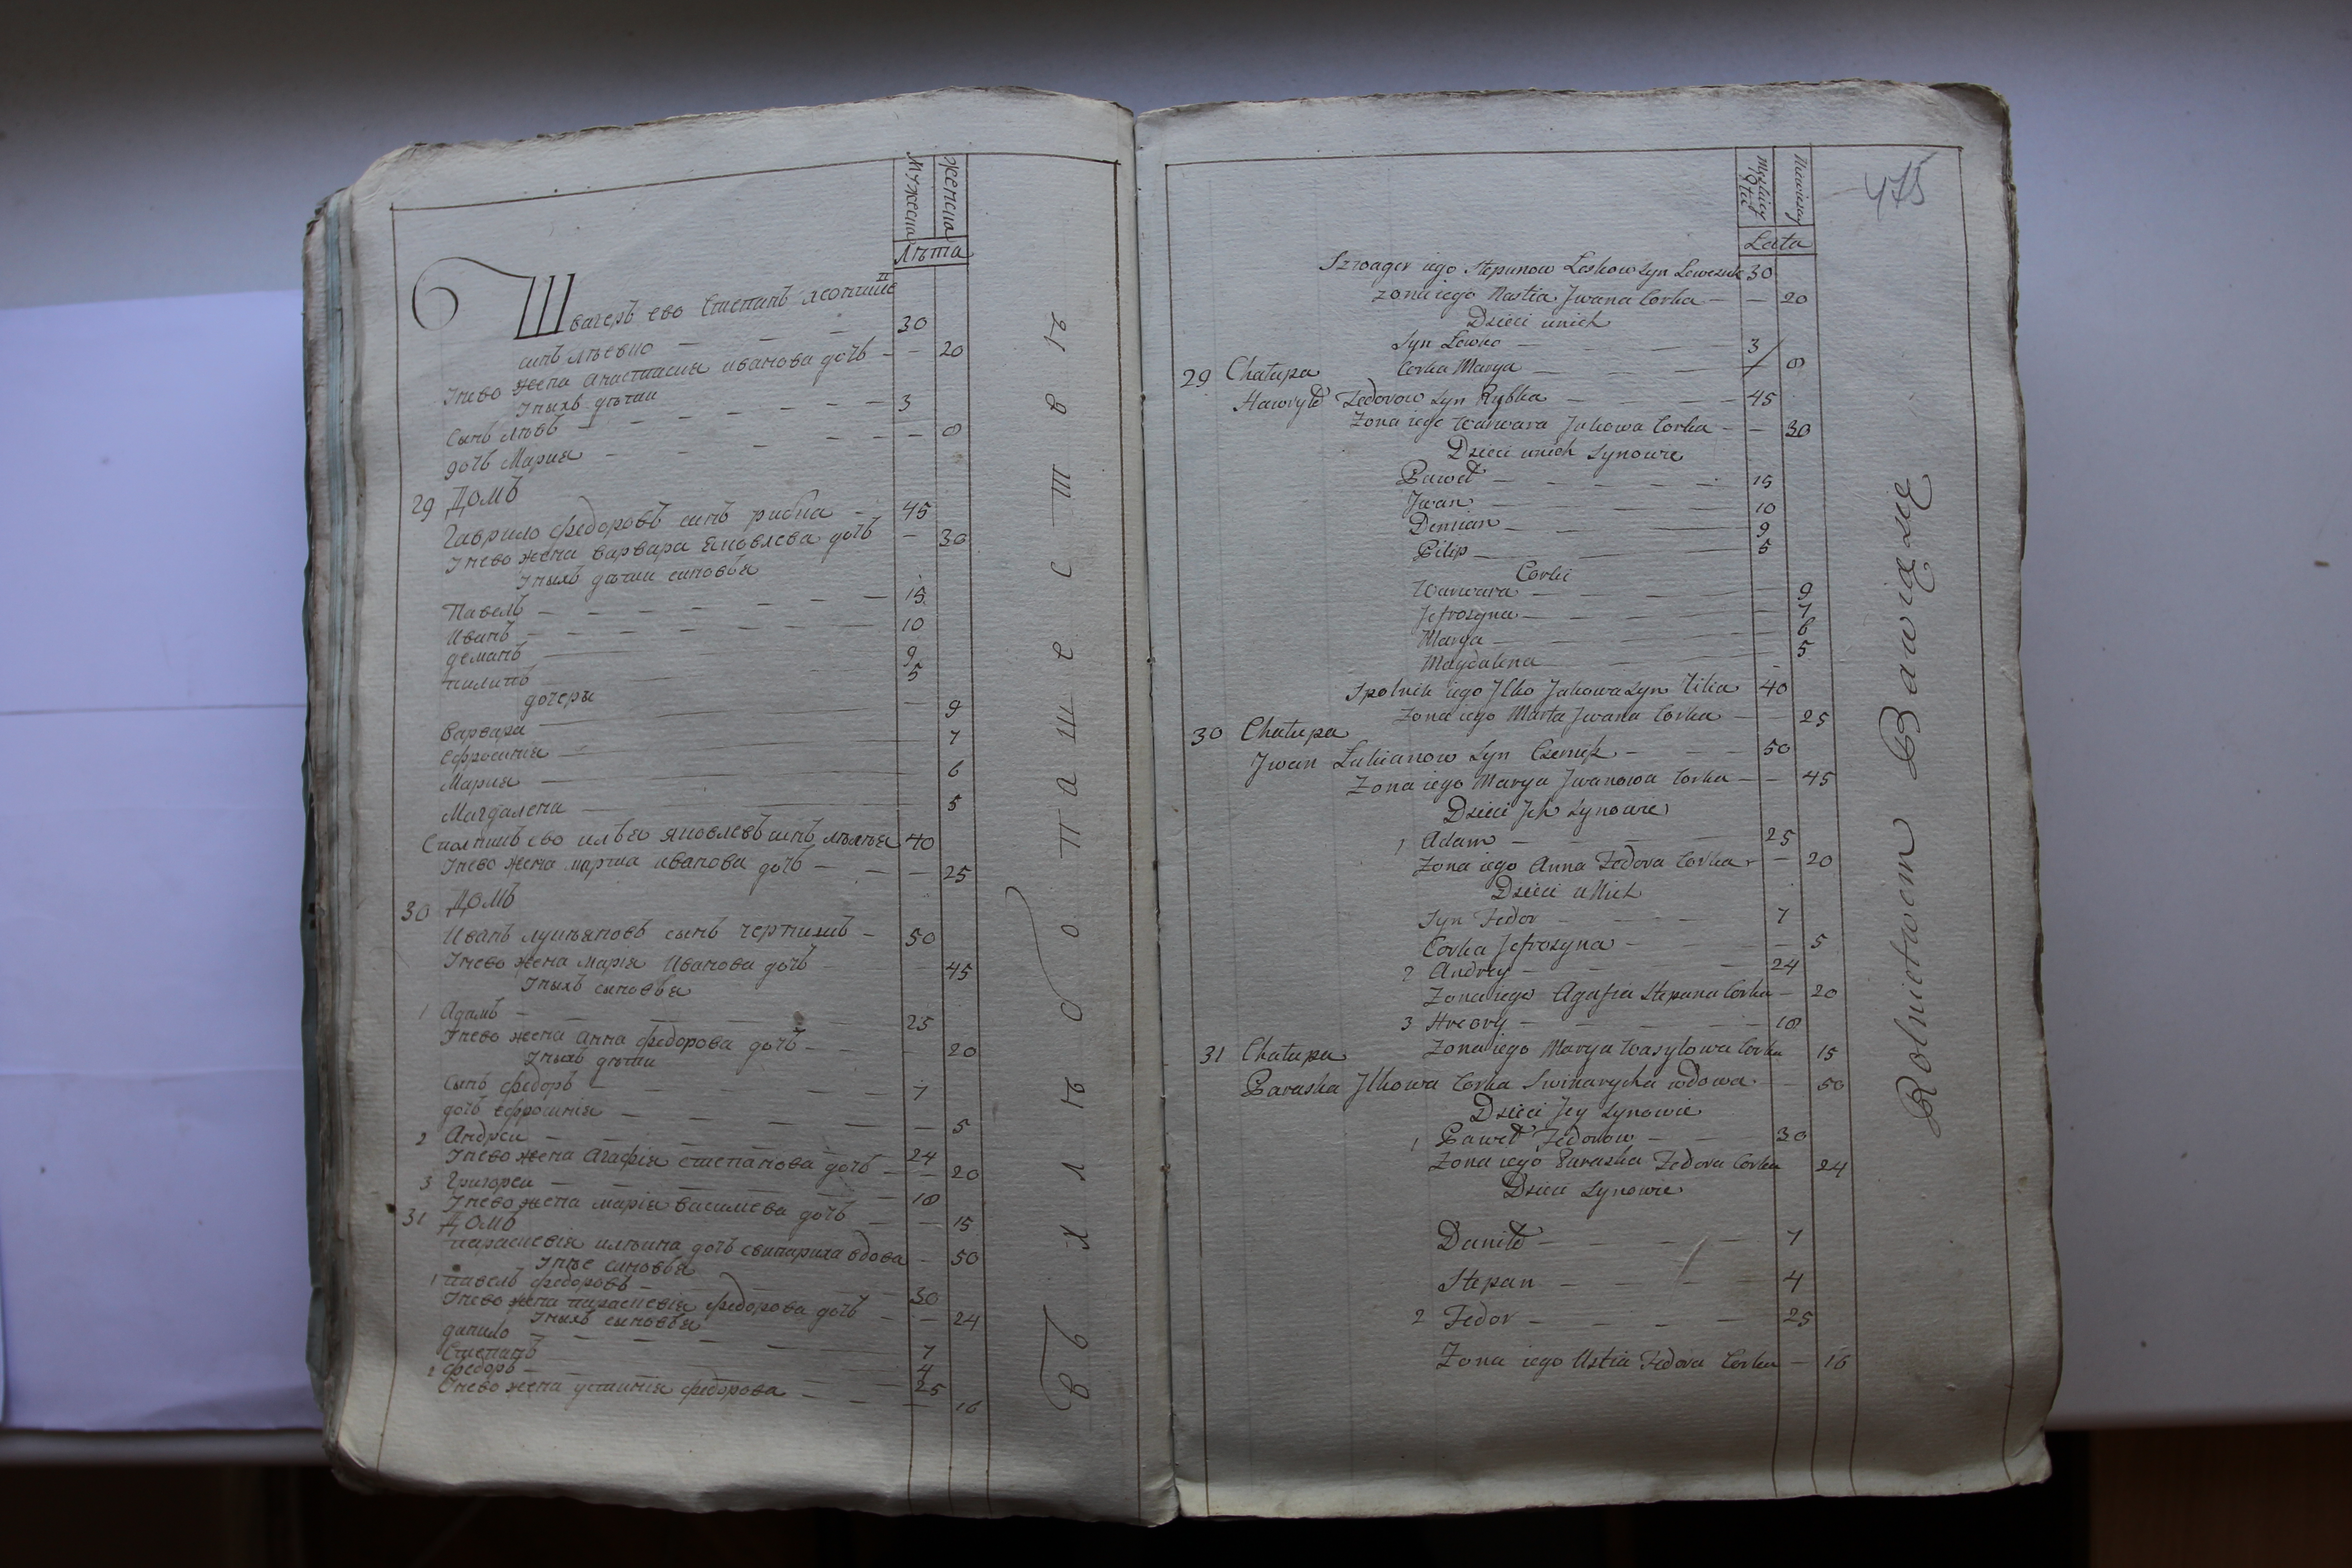 Мужеска
женска
Лѣта
Швагеръ ево Степанъ Леонтие
синъ лѣвко — — — 30
Ічево жена анастасия иванова дочъ — — 20
Інихъ дѣти
Синъ лѣвъ — — — 3
дочъ Мария — — — 8
29 Домъ
Гаврило федоровъ синъ рибка — 45
Інево жена варвара Яковлева дочъ — 30
Інихъ дѣти синовья
Павелъ — — — 15
Иванъ — — — 10
деманъ — 9
пилипъ — 5
дочеры
варвара — 9
Ефросиния — 7
Мария — 6
Магдалена — 5
ево илья яковлевъ синъ 40
Інево жена марта иванова дочъ — — 25
30 Домъ
Иванъ лукьяновъ синъ — 50
Інево жена марія Иванова дочъ — 45
Інихъ синовья
1 Адамъ — — — 25
Інево жена Анна федорова дочъ — 20
Інихъ дѣти
Синъ федоръ — — — 7
дочъ ефросинія — — — 5
2 Андреи — — — 24
Інево жена Агафія степанова дочъ — — 20
3 Григореи — — — 18
Інево жена марія василиева дочъ — — 15
31 Домъ
параскевія илѣина дочъ свинариха вдова — 50
Інее синовья
1 павелъ федоровъ — 30
Інево жена параскевія федорова дочъ — — 24
Інихъ синовья
данило — — — 7
Степанъ — 4
2 федоръ — 25
Інево жена устинія федорова — — 16
въ хлѣбопашествѣ
475
Męskiey Płci
Niewieściey
Lata
Szwager iego Stepanow Leskow Syn Lewczuk 30
Zona iego Nastia Jwana Corka — — 20
Dzieci unich
Syn Lewko — — — 3
Corka Marya — — — / 8
29 Chałupa
Hawryło Fedorow Syn Rybka — — 45
Zona iego Warwara Jakowa Corka — — 30
Dzieci unich Synowie
Paweł — — — 15
Jwan — — — 10
Demian — — — 9
Pilip — — — 5
Corki
Warwara — — — 9
Jefrosyna — — — 7
Marya — — — 6
Magdalena — — 5
Spolnik iego Jlko Jakowa Syn Lilia 40
Zona iego Marta Jwana Corka — — 25
30 Chałupa
Jwan Łukianow Syn — — 50
Zona iego Marya Jwanowa Corka — — 45
Dzieci Jch Synowie
1 Adam — — — 25
Zona iego Anna Fedora Corka — — 20
Dzieci u Nich
Syn Fedor — — — 7
Corka Jefrosyna — — — 5
2 Andrey — — — 24
Zona iego Agafia Stepana Corka — 20
3 Hreory — — — 18
Zona iego Marya Wasylowa Corka 15
31 Chałupa
Paraska Jlkowa Corka Swinarycha wdowa — 50
Dzieci Jey Synowie
1 Paweł Fedorow — — 30
Zona iego Paraska Fedora Corka 24
Dzieci Synowie
Daniło — — — 7
Stepan — — — 4
2 Fedor — — — 25
Zona iego Ustia Fedora Corka — 16
Rolnictwem Bawią Się